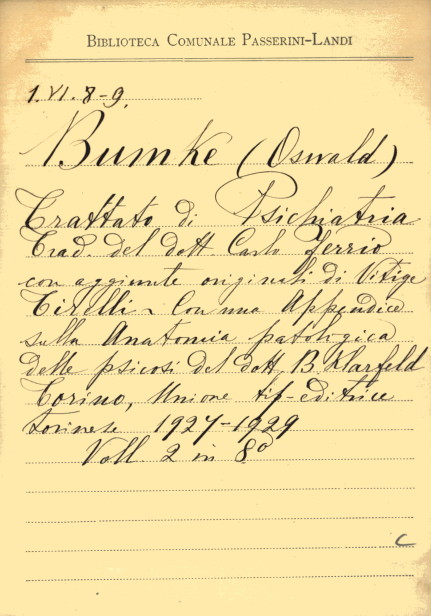 BIBLIOTECA COMUNALE PASSERINI-LANDI
1.VI.8-9.
Bumke (Oswald)
Trattato di Psichiatria
Trad. del dott. Carlo Ferrio
con aggiunte originali di Vitige
Tirelli - Con una Appendice
sulla Anatomia patologica
delle psicosi del dott. B. Klarfeld
Torino, Unione tip-editrice
torinese 1927-1929
Voll. 2 in 8º
C